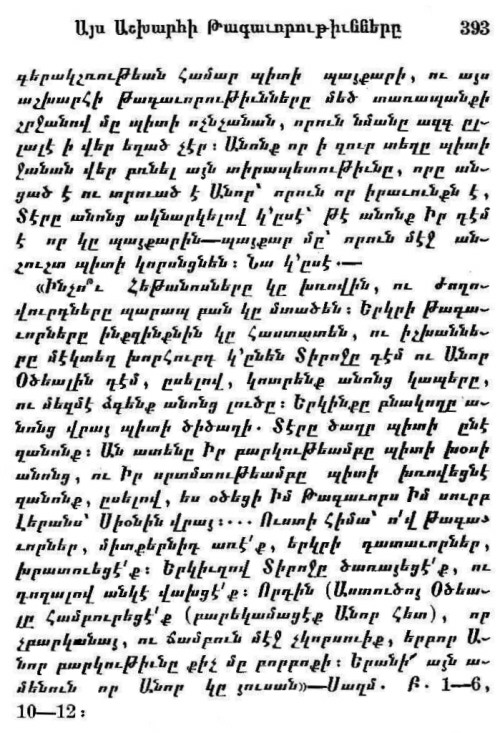 Այս Աշխարհի Թագաւորութիւնները 393
գերակշռութեան համար պիտի պայքարի, ու այս
աշխարհի թագաւորութիւնները մեծ տառապանքի
շրջանով մը պիտի ոչնչանան, որուն նմանը ազգ ըլ-
լալէ ի վեր եղած չէր։ Անոնք որ ի զուր տեղը պիտի
ջանան վեր բռնել այն տիրապետութիւնը, որը ան-
ցած է ու տրուած է Անոր՝ որուն որ իրաւունքն է,
Տէրը անոնց ակնարկելով կ՚ըսէ՝ թէ անոնք Իր դէմ
է որ կը պայքարին—պայքար մը՝ որուն մէջ ան-
շուշտ պիտի կորսնցնեն։ Նա կ՚ըսէ.—
«Ինչո՞ւ Հեթանոսները կը խռովին, ու ժողո-
վուրդները պարապ բան կը մտածեն։ Երկրի Թագա-
ւորները ինքզինքնին կը հաստատեն, ու իշխաննե-
րը մէկտեղ խորհուրդ կ՚ընեն Տիրոջը դէմ ու Անոր
Օծեալին դէմ, ըսելով, կոտրենք անոնց կապերը,
ու մեզմէ ձգենք անոնց լուծը։ Երկինքը բնակողը ա-
նոնց վրայ պիտի ծիծաղի. Տէրը ծաղր պիտի ընէ
զանոնք։ Ան ատենը Իր բարկութեամբը պիտի խօսի
անոնց, ու Իր սրտմտութեամբը պիտի խռովեցնէ
զանոնք, ըսելով, ես օծեցի Իմ Թագաւորս Իմ սուրբ
Լերանս՝ Սիօնին վրայ։... Ուստի հիմա՝ ո՛վ թագա-
ւորներ, միտքերնիդ առէ՛ք, երկրի դատաւորներ,
խրատուեցէ՛ք։ Երկիւղով Տիրոջը ծառայեցէ՛ք, ու
դողալով անկէ վախցէ՛ք։ Որդին (Աստուծոյ Օծեա-
լը համբուրեցէ՛ք (բարեկամացէք Անոր հետ), որ
չբարկանայ, ու ճամբուն մէջ չկորսուիք, երբոր Ա-
նոր բարկութիւնը քիչ մը բորբոքի։ Երանի՜ այն ա-
մենուն որ Անոր կը յուսան»—Սաղմ. Բ. 1—6,
10—12։